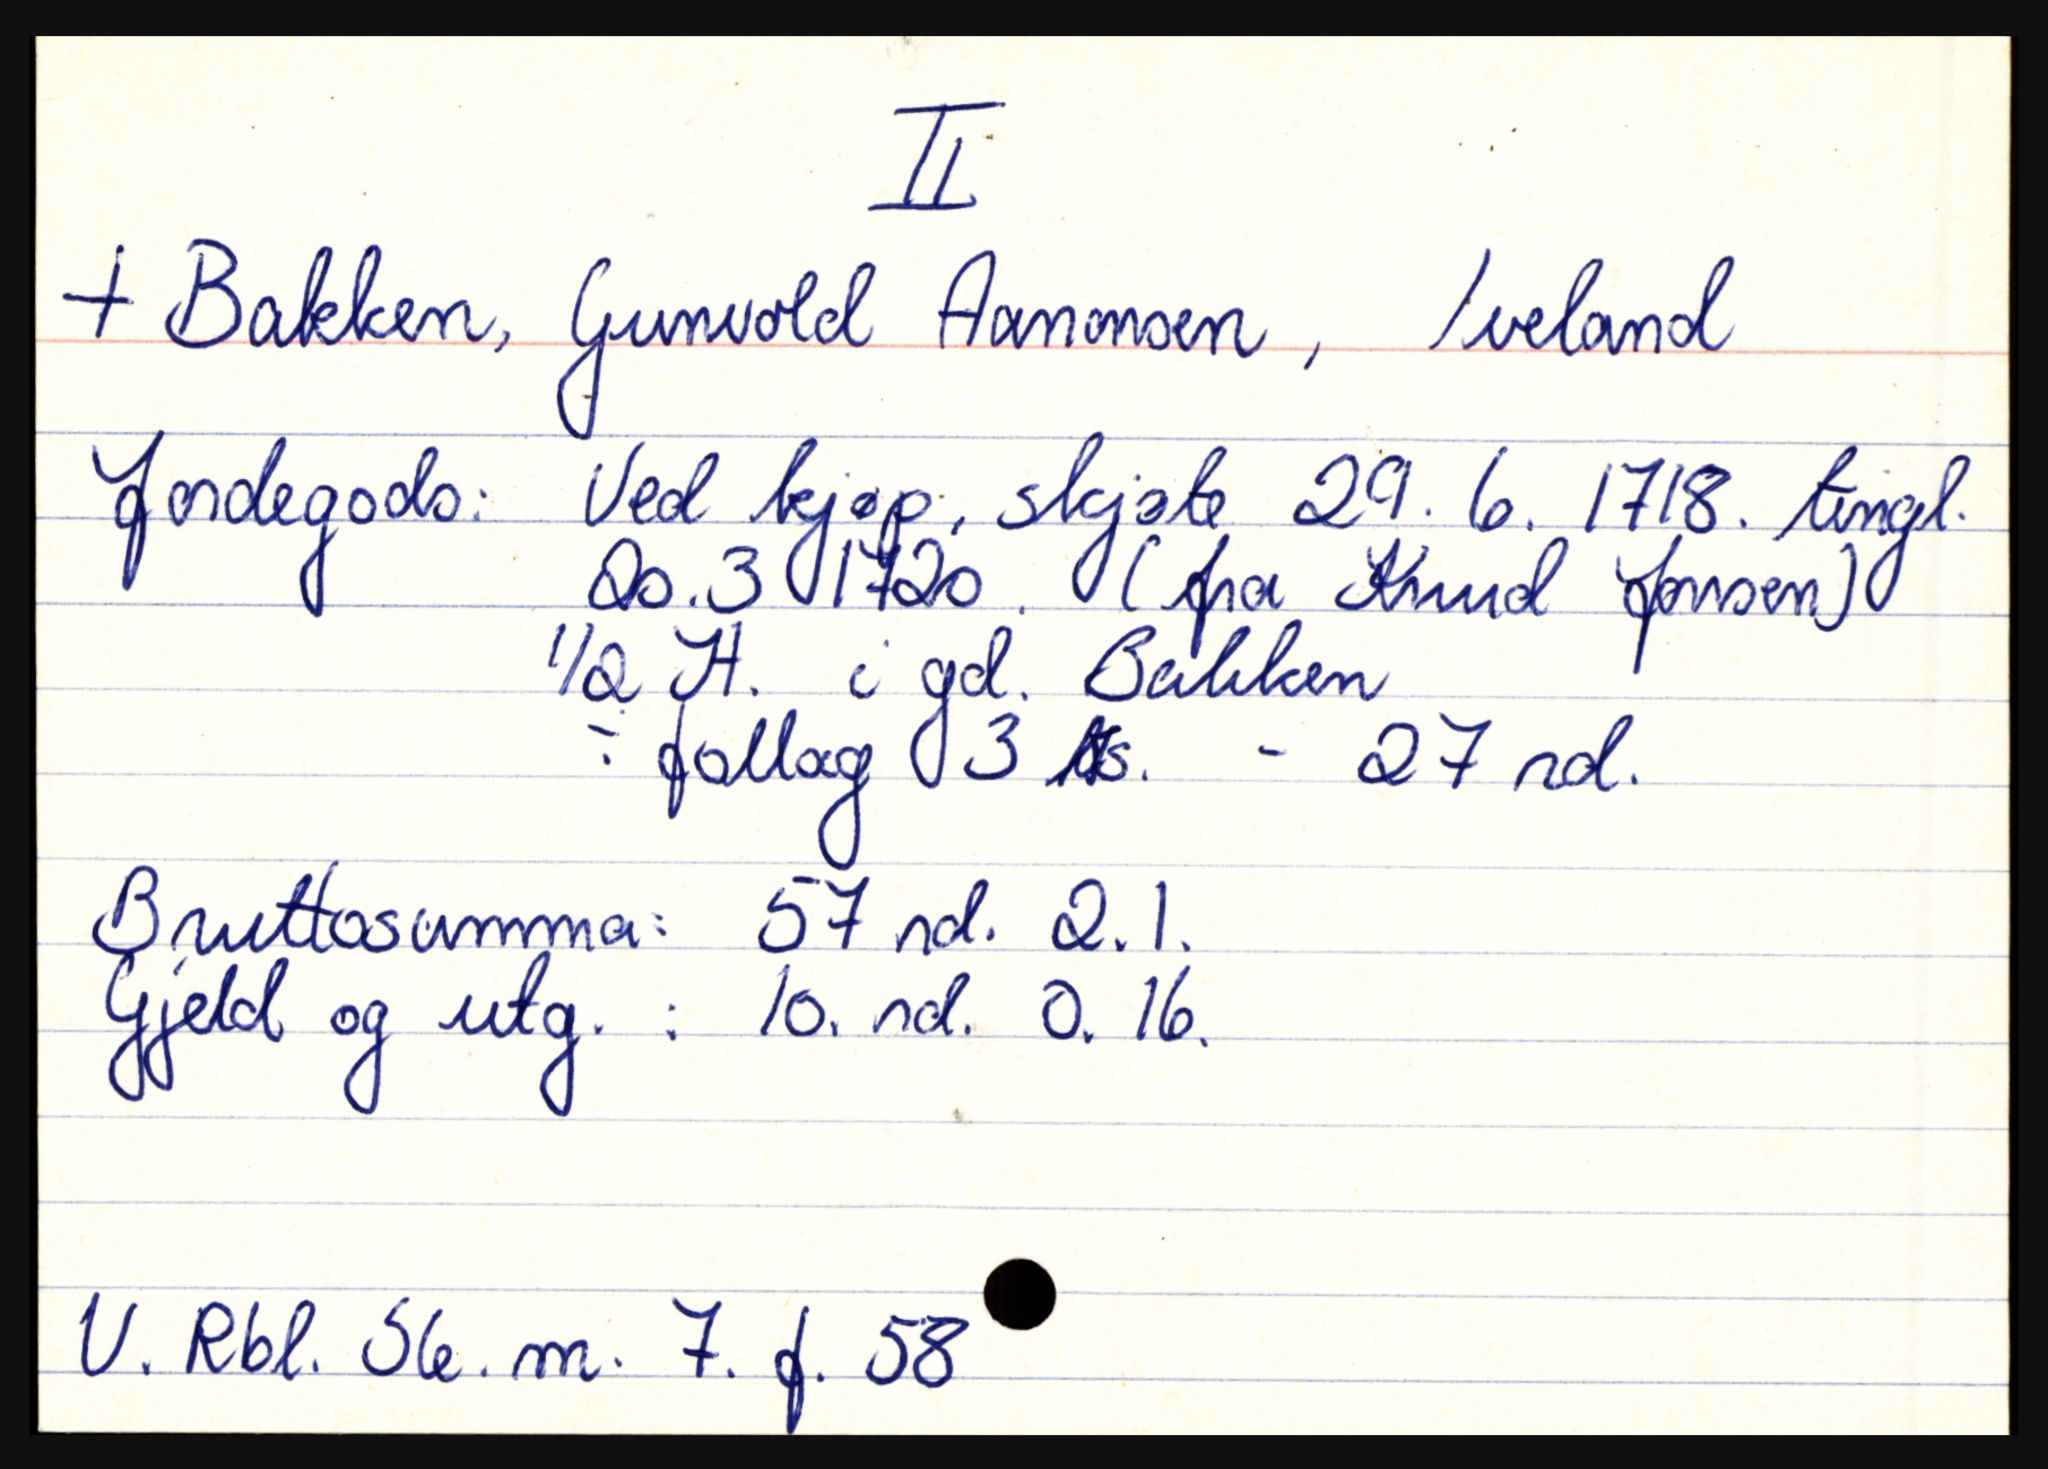 II
+ Bakken, Gunvold Aanonsen, Iveland
Jordegods: Ved kjøp, skjøte 29. 6. 1718. tingl.
20.3 1720. (fra Knud Jonsen)
1/2 H. i gd. Bakken
÷ follag 3 ks. - 27 rd.
Bruttosumma: 57 rd. 2.1.
Gjeld og utg. : 10. rd. 0. 16.
V. Rbl. Sk. nr. 7. f. 58